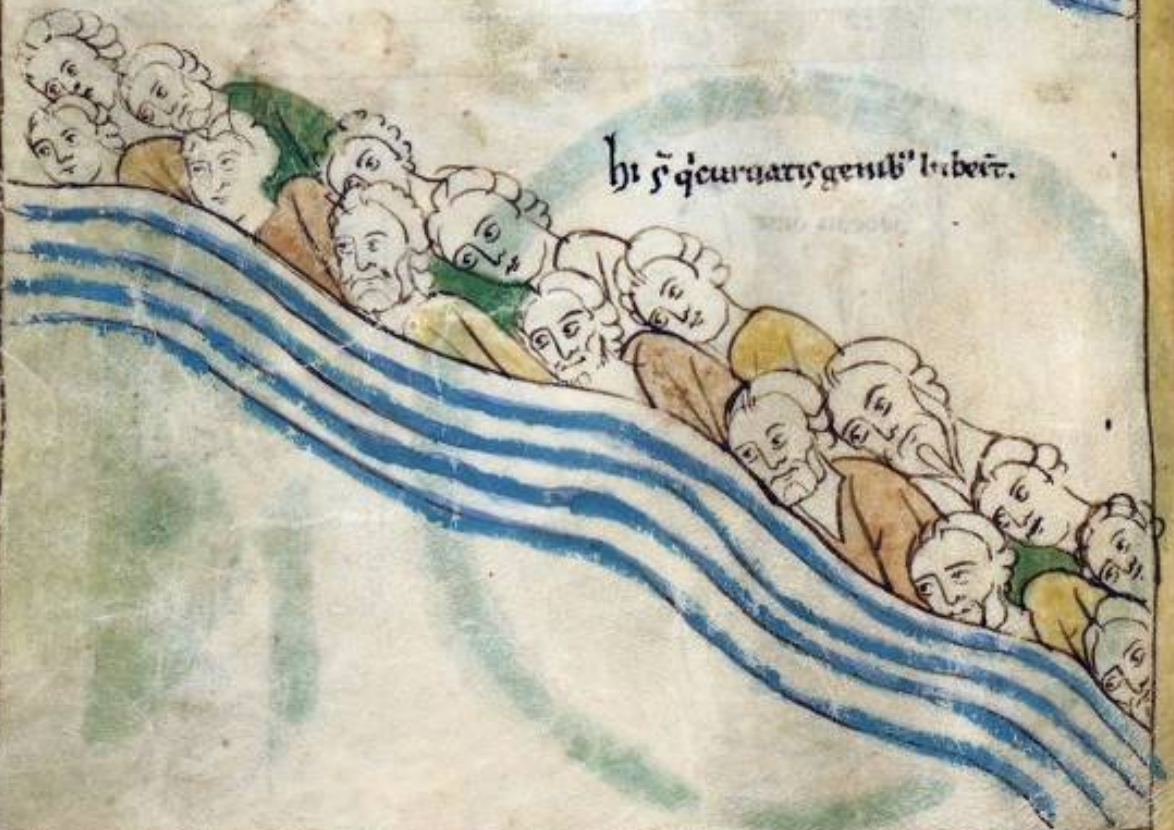 hi ſ̄ qͥ curuatiſ genibꝰ biber̄t.